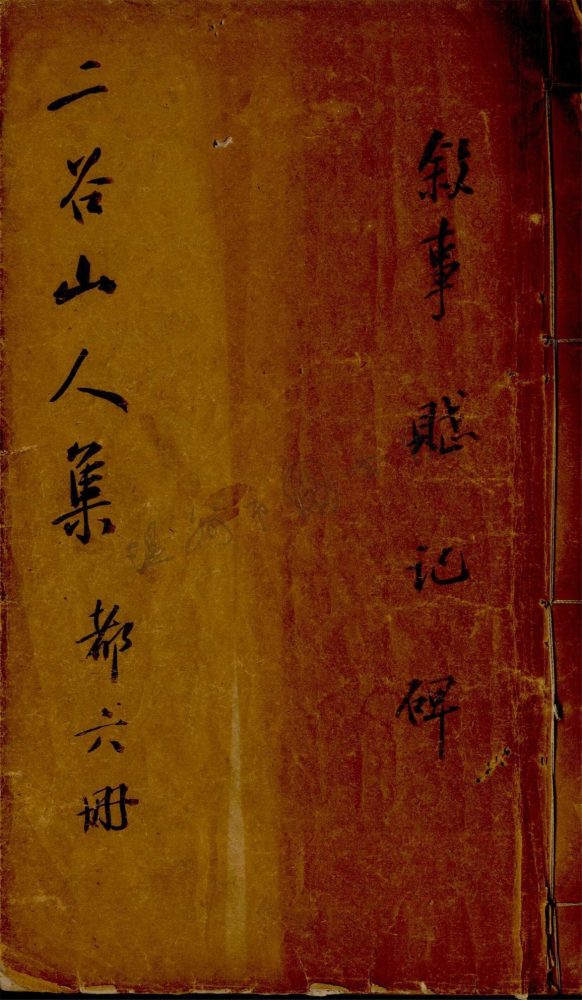 敘事賦記碑
二谷山人集 都六册